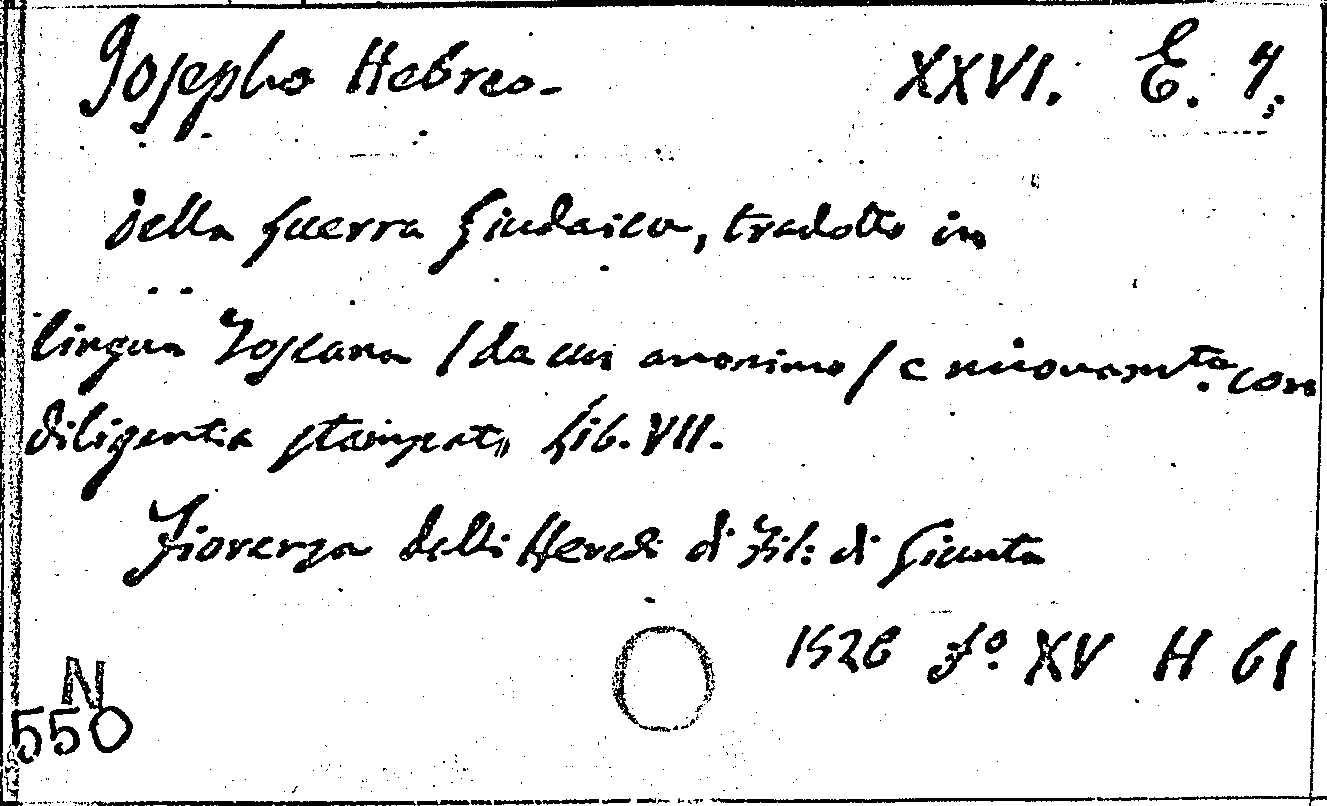 Josepho Hebreo. XXVI. E. 4.
della guerra Giudaica, tradotto in
lingua Toscana / da un anonimo / e nuovam.te con
diligentia stampato Lib. VII.
Fiorenza delli Heredi di Fil: di Giunta
1526 Fo. XV H 61
N
550